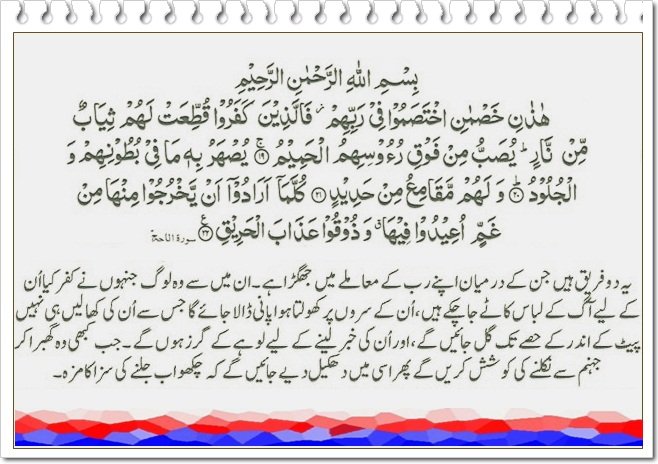 بِسْمِ اللهِ الرَّحْمٰنِ الرَّحِيْمِ
هٰذٰنِ خَصْمٰنِ اخْتَصَمُوْا فِىْ رَبِّهِمْ ۫ فَالَّذِيْنَ كَفَرُوْا قُطِّعَتْ لَهُمْ ثِيَابٌ
مِّنْ نَّارٍ ؕ يُصَبُّ مِنْ فَوْقِ رُءُوْسِهِمُ الْحَمِيْمُ ۚ﴿۱۹﴾ يُصْهَرُ بِهٖ مَا فِىْ بُطُوْنِهِمْ وَ
الْجُلُوْدُ ؕ﴿۲۰﴾ وَ لَهُمْ مَّقَامِعُ مِنْ حَدِيْدٍ ﴿۲۱﴾ كُلَّمَاۤ اَرَادُوْۤا اَنْ يَّخْرُجُوْا مِنْهَا مِنْ
غَمٍّ اُعِيْدُوْا فِيْهَا ۗ وَ ذُوْقُوْا عَذَابَ الْحَرِيْقِ ﴿۲۲﴾ سورة الحج
یہ دو فریق ہیں جن کے درمیان اپنے رب کے معاملے میں جھگڑا ہے۔ ان میں سے وہ لوگ جنہوں نے کفر کیا اُن
کے لیے آگ کے لباس کاٹے جا چکے ہیں، اُن کے سروں پر کھولتا ہوا پانی ڈالا جائے گا جس سے اُن کی کھالیں ہی نہیں
پیٹ کے اندر کے حصے تک گل جائیں گے، اور اُن کی خبر لینے کے لیے لوہے کے گرز ہوں گے۔ جب کبھی وہ گھبرا کر
جہنم سے نکلنے کی کوشش کریں گے پھر اسی میں دھکیل دیے جائیں گے کہ چکھو اب جلنے کی سزا کا مزہ۔